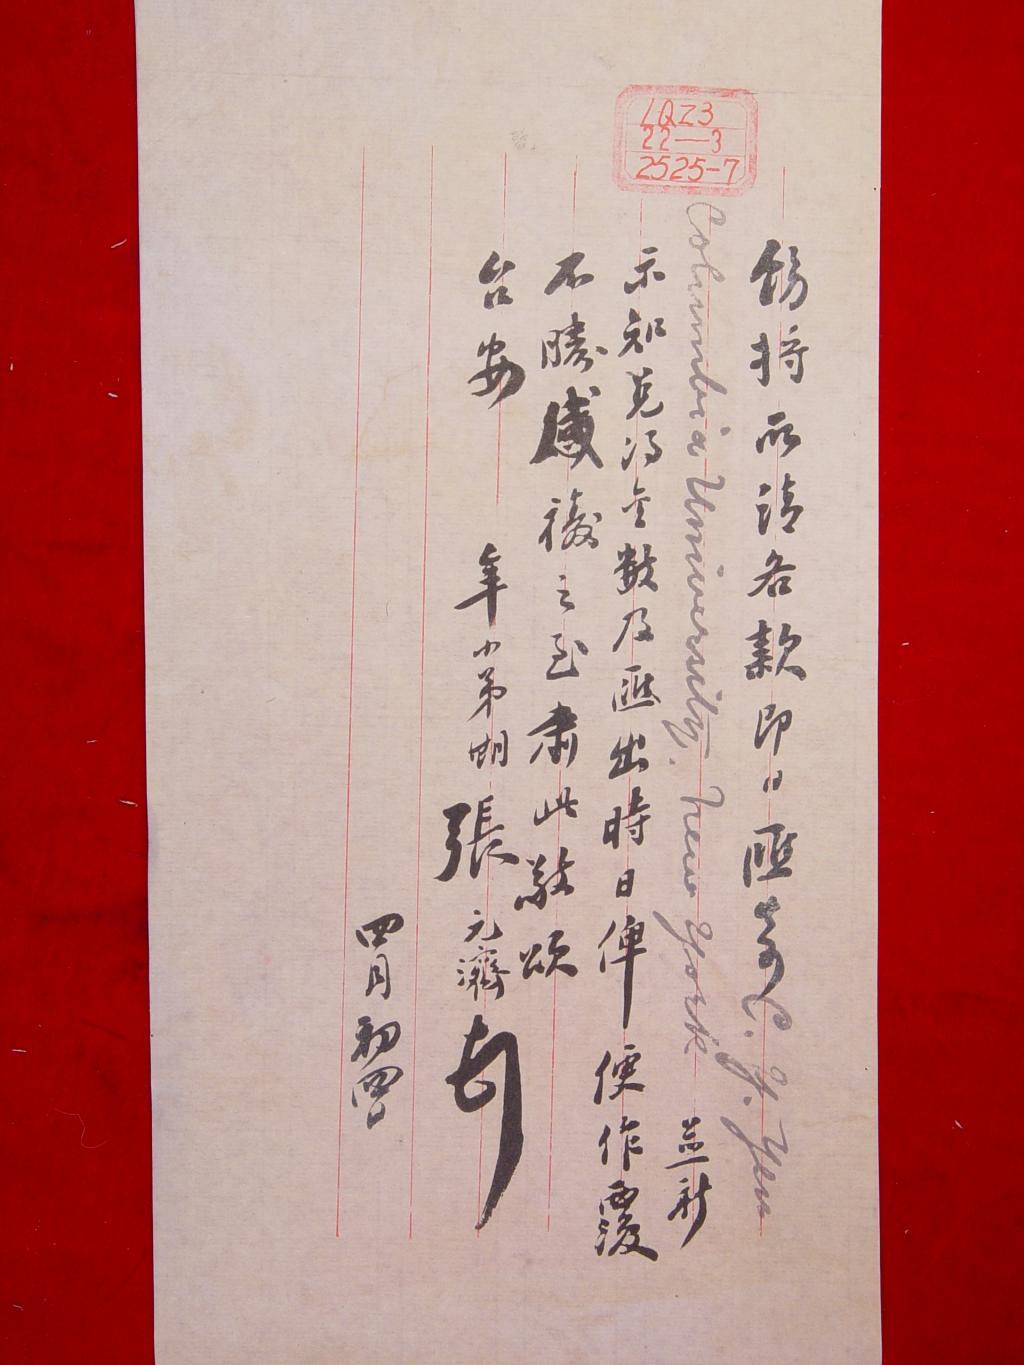 1QZ3
22—3
2525-7
飭將所請各款即日匯寄 C. Y. Yen
Columbia University, New York 並祈
示知兑得金數及匯出時日俾便作覆
不勝感禱之至肅此敬頌
台安 年小弟期張元濟頓首
四月初四日